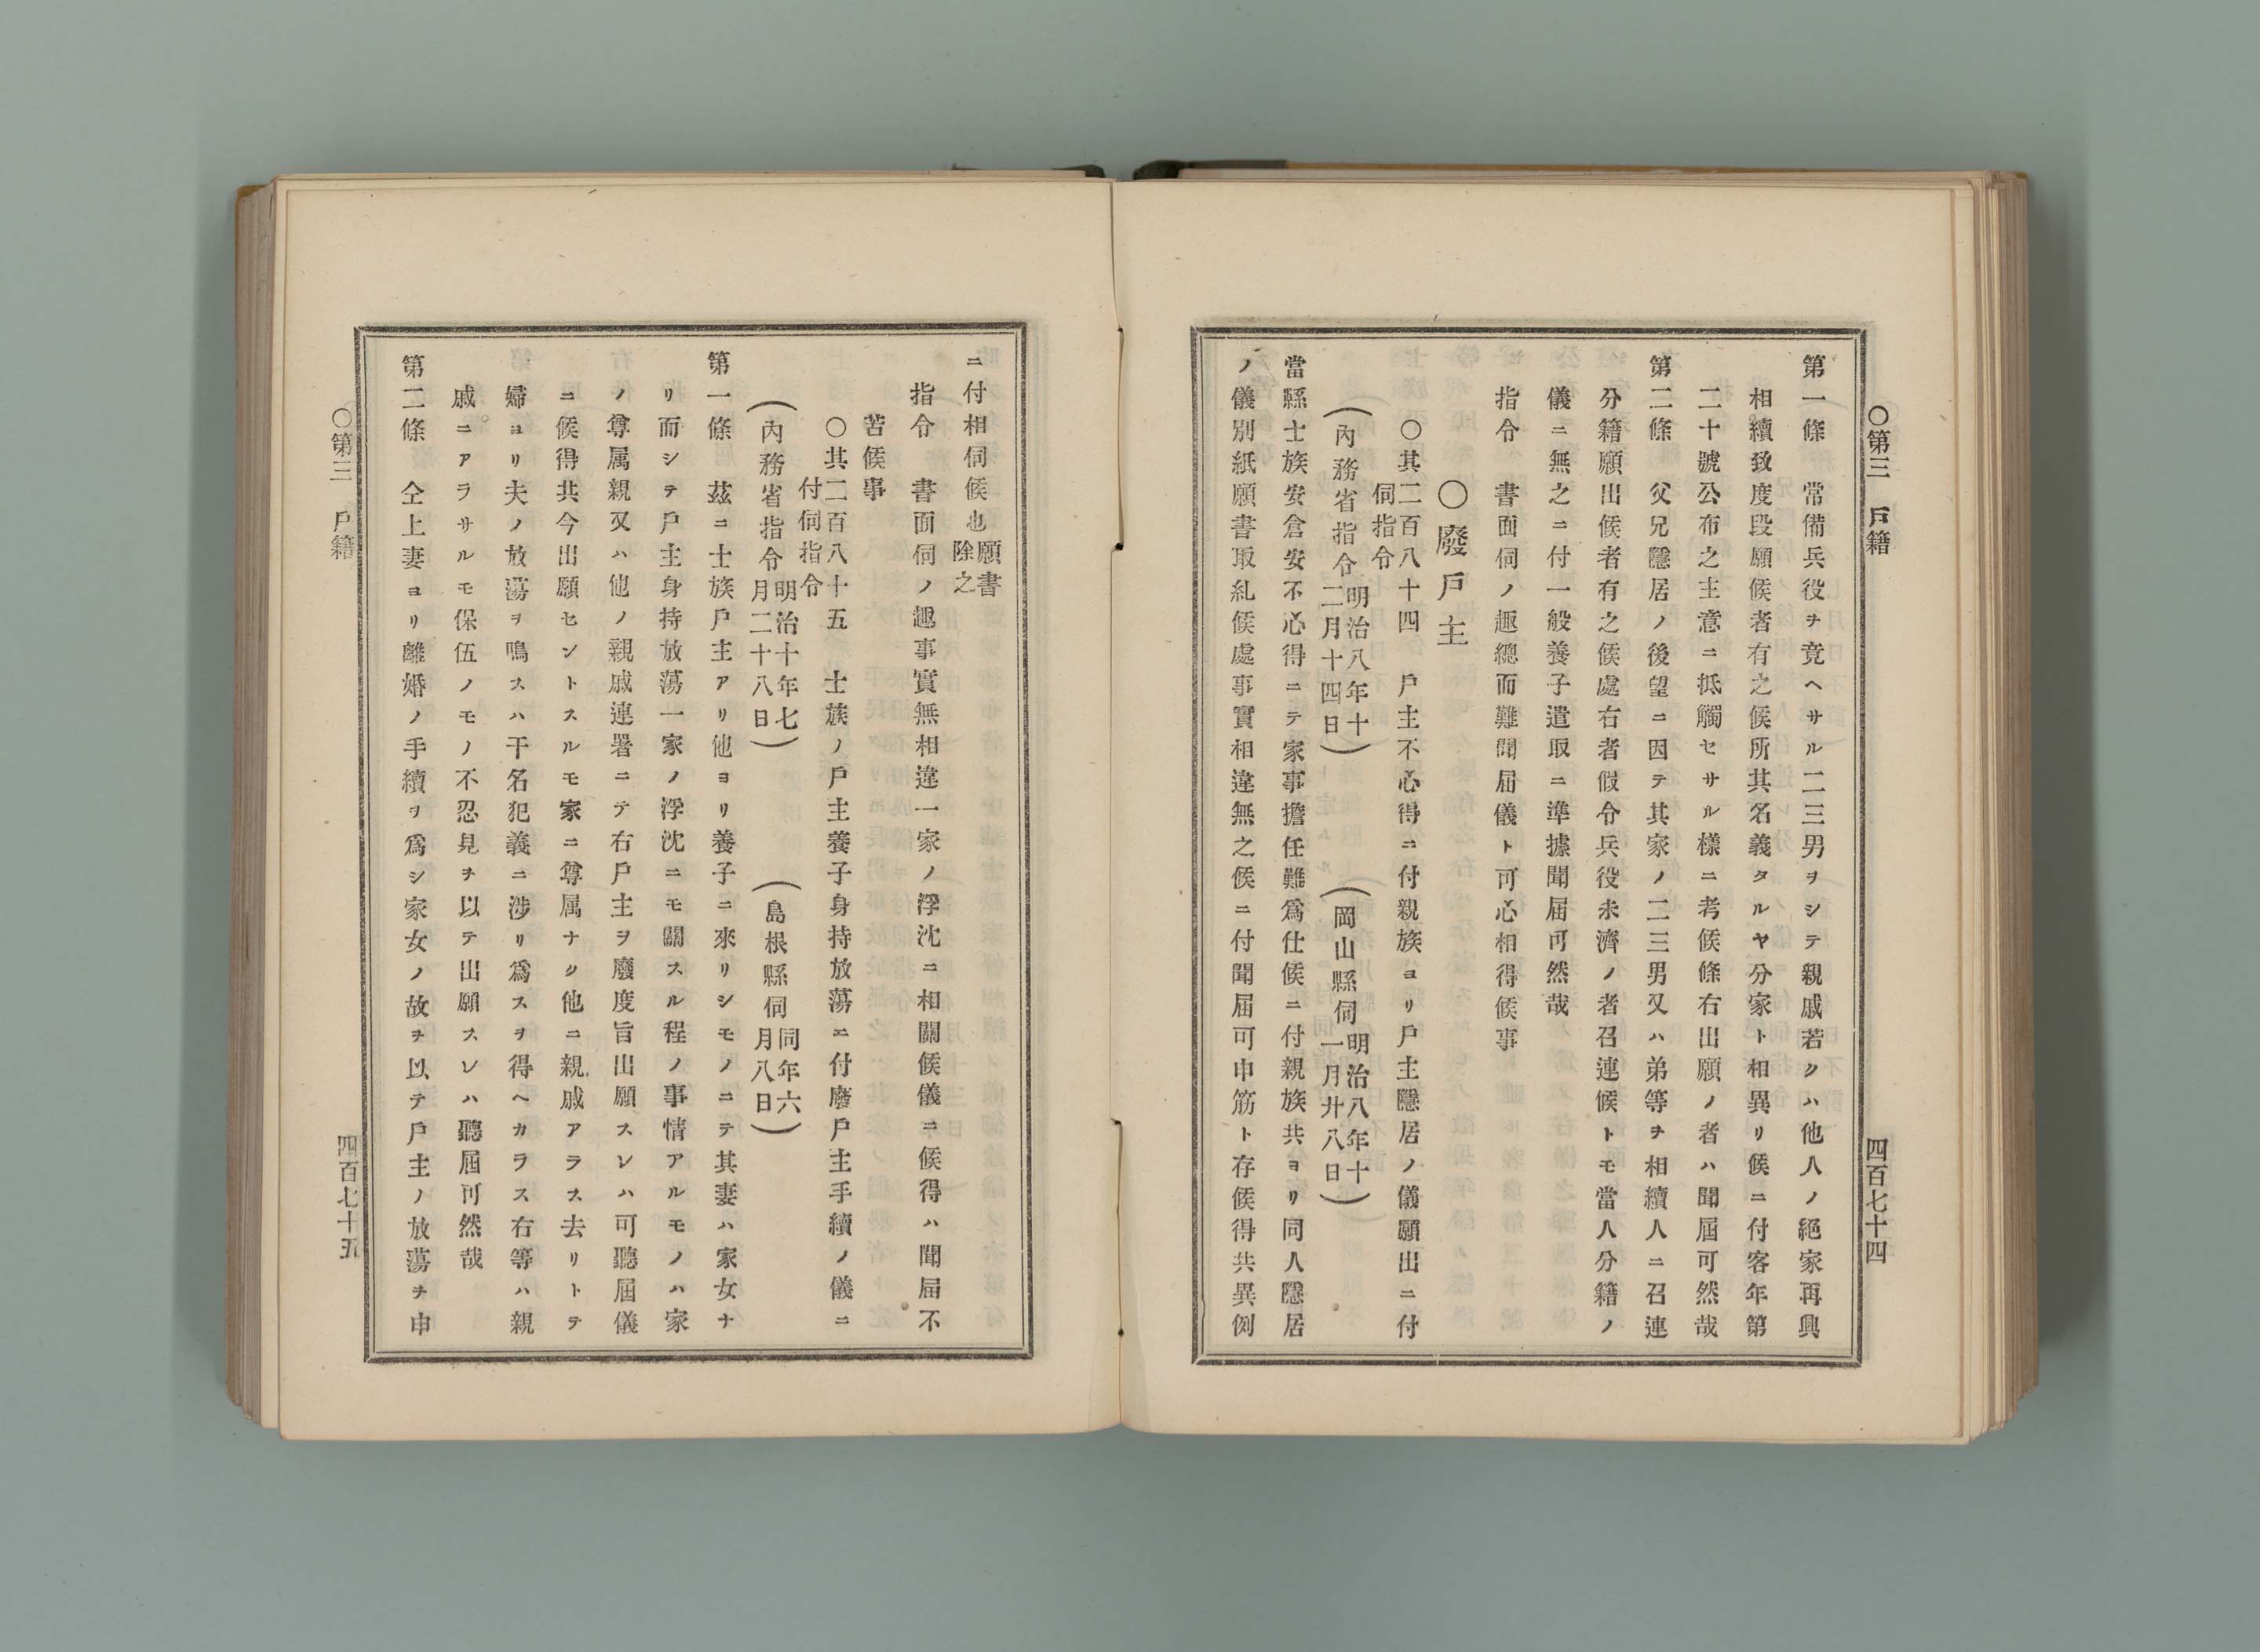 ○第三　戶籍　四百七十四
第一條　常備兵役ヲ竟ヘサル二三男ヲシテ親戚若シクハ他人ノ絕家再興
相續致度段願候者有之候所其名義タルヤ分家ト相異リ候ニ付客年第
二十號公布之主意ニ抵觸セサル樣ニ考候條右出願ノ者ハ聞屆可然哉
第二條　父兄隱居ノ後望ニ因テ其家ノ二三男又ハ弟等ヲ相續人ニ召連
分籍願出候者有之候處右者假令兵役未濟ノ者召連候トモ當人分籍ノ
儀ニ無之ニ付一般養子遣取ニ準據聞屆可然哉
指令　書面伺ノ趣總而難聞屆儀ト可心相得候事
○廢戶主
○其二百八十四　戶主不心得ニ付親族ヨリ戶主隱居ノ儀願出ニ付
伺指令
（內務省指令明治八年十二月十四日）　（岡山縣伺明治八年十一月廿八日）
當縣士族安倉安不心得ニテ家事擔任難爲仕候ニ付親族共ヨリ同人隱居
ノ儀別紙願書取糺候處事實相違無之候ニ付聞屆可申筋ト存候得共異例
ニ付相伺候也願書除之
指令　書面伺ノ趣事實無相違一家ノ浮沈ニ相關候儀ニ候得ハ聞屆不
苦候事
○其二百八十五　士族ノ戶主養子身持放蕩ニ付廢戶主手續ノ儀ニ
付伺指令
（內務省指令明治十年七月二十八日）　（島根縣伺同年六月八日）
第一條　玆ニ士族戶主アリ他ヨリ養子ニ來リシモノニテ其妻ハ家女ナ
リ而シテ戶主身持放蕩一家ノ浮沈ニモ關スル程ノ事情アルモノハ家
ノ尊属親又ハ他ノ親戚連署ニテ右戶主ヲ廢度旨出願スレハ可聽屆儀
ニ候得共今出願セントスルモ家ニ尊属ナク他ニ親戚アラス去リトテ
婦ヨリ夫ノ放蕩ヲ鳴スハ干名犯義ニ涉リ爲スヲ得ヘカラス右等ハ親
戚ニアラサルモ保伍ノモノ不忍見ヲ以テ出願スレハ聽屆可然哉
第二條　仝上妻ヨリ離婚ノ手續ヲ爲シ家女ノ故ヲ以テ戶主ノ放蕩ヲ申
○第三　戶籍　四百七十五